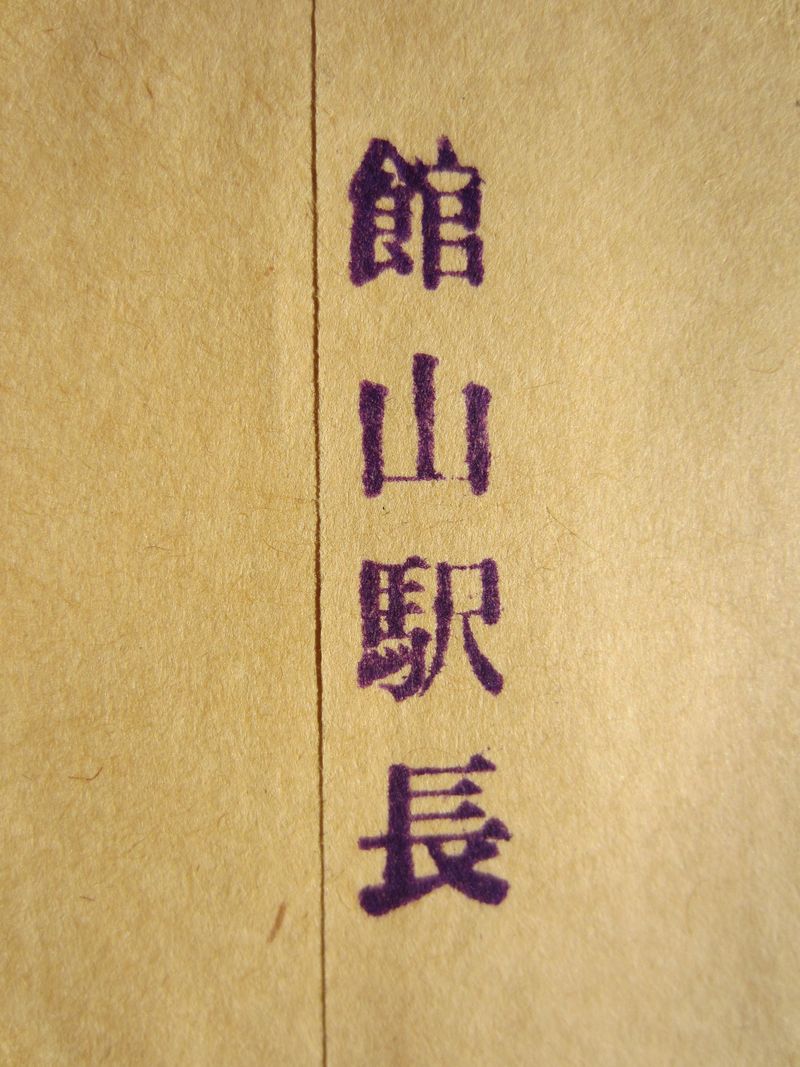 館山駅長